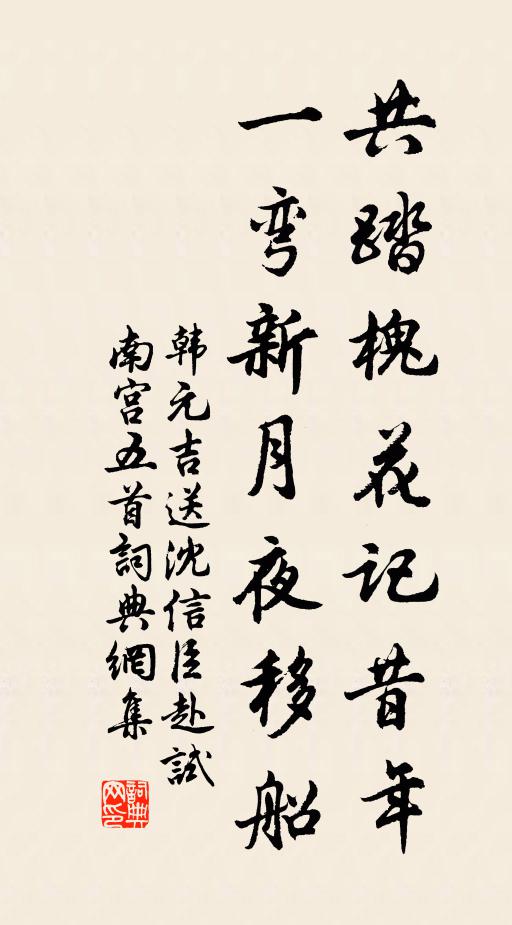 共踏槐花记昔年
一弯新月夜移船
韩元吉送沈信臣赴試
南宫五首詞典網集
詞典网印